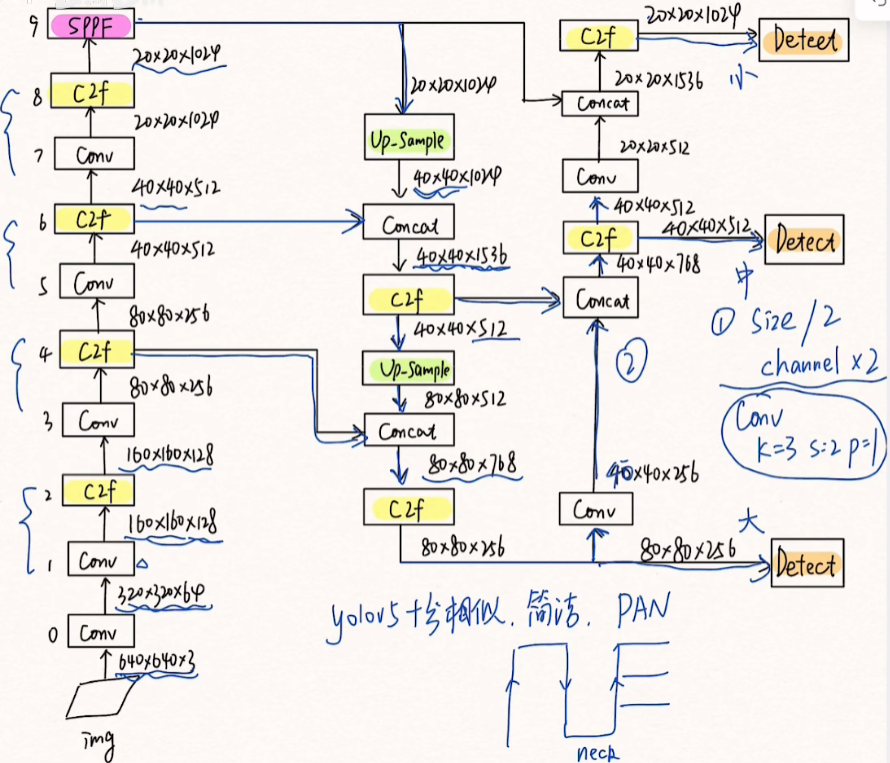 9
SPPF
20×20×1024
8
C2f
20×20×1024
7
Conv
40×40×512
6
C2f
40×40×512
5
Conv
80×80×256
4
C2f
80×80×256
3
Conv
160×160×128
2
C2f
160×160×128
1
Conv
320×320×64
0
Conv
640×640×3
img
20×20×1024
Up-Sample
40×40×1024
Concat
40×40×1536
C2f
40×40×512
Up-Sample
80×80×512
Concat
80×80×768
C2f
80×80×256
20×20×1024
C2f
Detect
小
20×20×1536
Concat
20×20×512
Conv
40×40×512
C2f
40×40×512
Detect
中
40×40×768
Concat
②
40×40×256
Conv
大
80×80×256
Detect
① size/2
channel ×2
Conv
k=3 s=2 p=1
yolov5十分相似. 简洁. PAN
neck